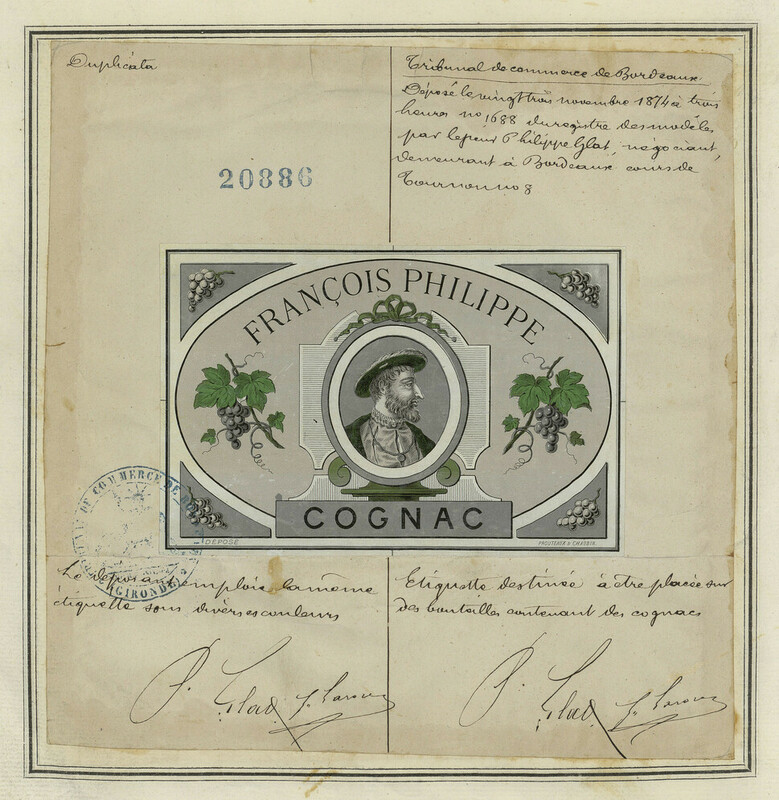 Duplicata
Tribunal de commerce de Bordeaux
Déposé le vingt trois novembre 1874 à trois
heures no 1688 du registre des modèles
par le sieur Philippe Glat, négociant,
demeurant à Bordeaux, cours de
Tournon no 8
20886
FRANÇOIS PHILIPPE
COGNAC
DÉPOSÉ
COMMERCE DE
GIRONDE
Le déposant emploie la même
étiquette sous diverses couleurs
Etiquette destinée à être placée sur
des bouteilles contenant des cognacs
P. Glat
P. Glat